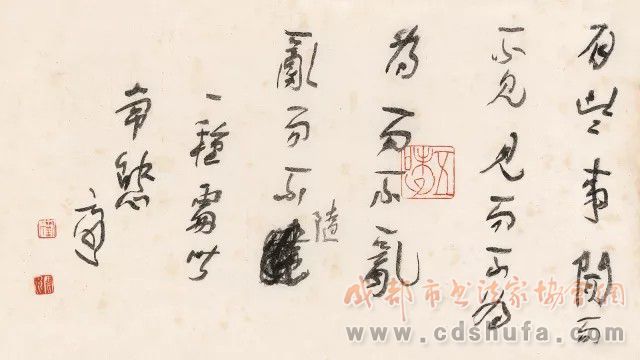 有些事聞而
不見見而不為
為而不亂
亂而不隨
一種世
常態
成都市书法家協會網
www.cdshufa.com